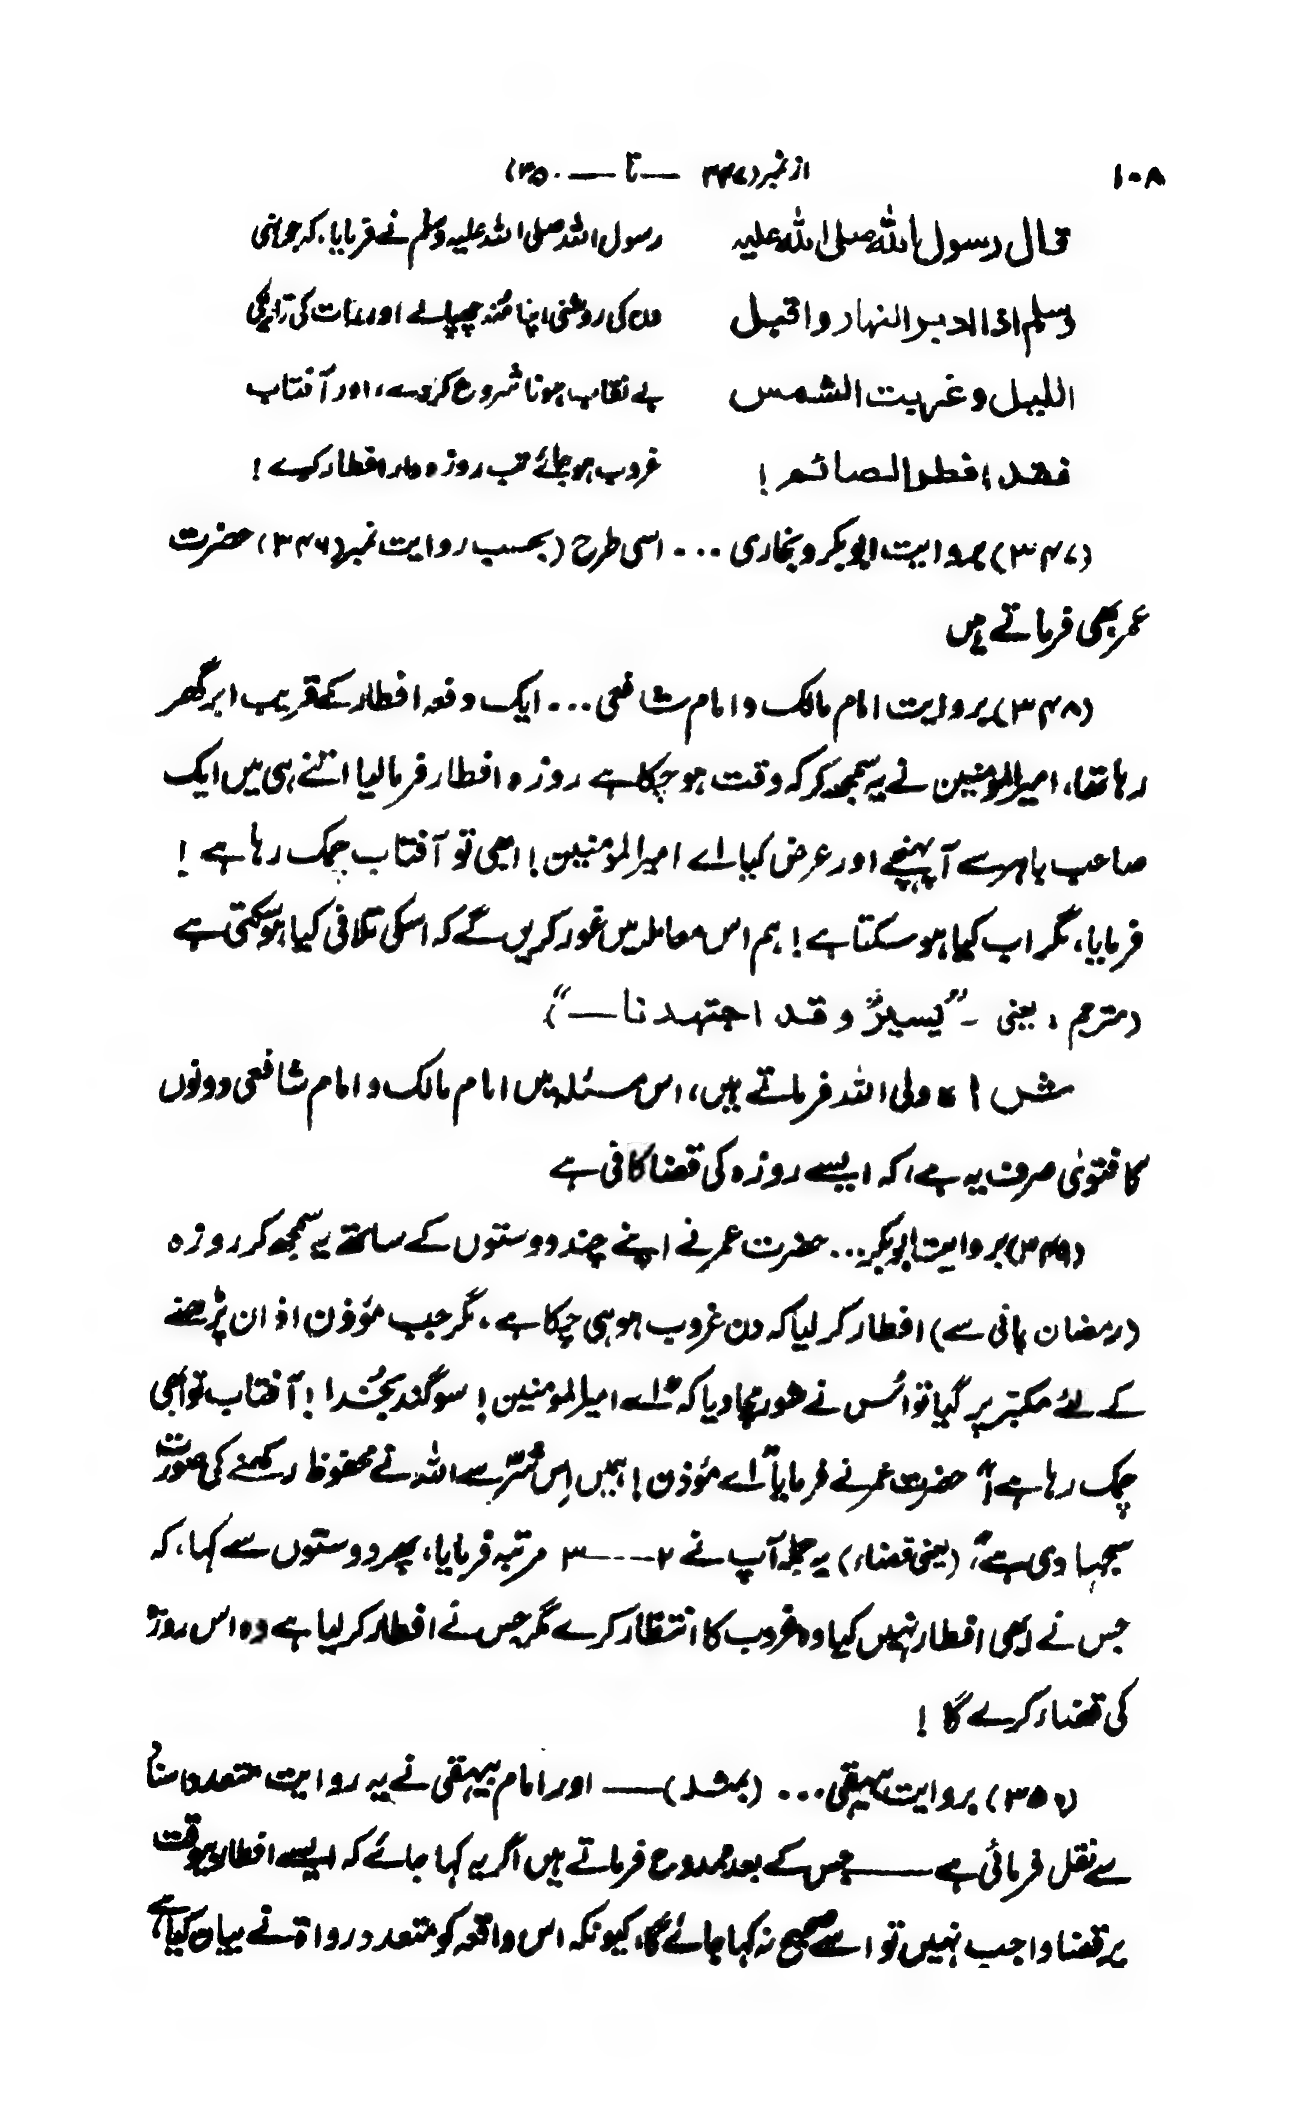 ۱۰۸ از نمبر (۳۴۷ — تا — ۳۵۰)
قال رسول اللہ صلی اللہ علیہ رسول اللہ صلی اللہ علیہ وسلم نے فرمایا، کہ جونہی
وسلم اذا ادبر النہار واقبل دن کی روشنی اپنا منہ چھپالے اور رات کی تاریکی
اللیل وغربت الشمس بے نقاب ہونا شروع کردے، اور آفتاب
فقد افطر الصائم! غروب ہوجائے تب روزہ دار افطار کرے!
(۳۴۷) بروایت ابوبکر و بخاری ... اسی طرح (بحسب روایت نمبر (۳۴۶) حضرت
عمر بھی فرماتے ہیں
(۳۴۸) بروایت امام مالک و امام شافعی ... ایک دفعہ افطار کے قریب ابر گھر
رہا تھا، امیرالمومنین نے یہ سمجھ کر کہ وقت ہو چکا ہے روزہ افطار فرمالیا اتنے ہی میں ایک
صاحب باہر سے آپہنچے اور عرض کیا اے امیرالمومنین! ابھی تو آفتاب چمک رہا ہے!
فرمایا، مگر اب کیا ہو سکتا ہے! ہم اس معاملہ میں غور کریں گے کہ اسکی تلافی کیا ہوسکتی ہے
(مترجم، یعنی ـ "یسیرٌ و قد اجتہدنا —")
ش ا، ولی اللہ فرماتے ہیں، اس مسئلہ میں امام مالک و امام شافعی دونوں
کا فتویٰ صرف یہ ہے، کہ ایسے روزہ کی قضا کافی ہے
(۳۴۹) بروایت ابوبکر ... حضرت عمر نے اپنے چند دوستوں کے ساتھ یہ سمجھ کر روزہ
(رمضان پانی سے) افطار کر لیا کہ دن غروب ہو ہی چکا ہے، مگر جب مؤذن اذان پڑھنے
کے لئے مکبّر پر گیا تو اُس نے شور مچا دیا کہ "اے امیرالمومنین! سوگند بخُدا! آفتاب تو ابھی
چمک رہا ہے!" حضرت عمر نے فرمایا "اے مؤذن! ہمیں اِس شرّ سے اللہ نے محفوظ رکھنے کی صورت
سمجھا دی ہے"، (یعنی قضاء) یہ جملہ آپ نے ۲---۳ مرتبہ فرمایا، پھر دوستوں سے کہا، کہ
جس نے ابھی افطار نہیں کیا وہ غروب کا انتظار کرے مگر جس نے افطار کر لیا ہے وہ اس روزہ
کی قضاء کرے گا!
(۳۵۰) بروایت بیہقی ... (بمثلہ) — اور امام بیہقی نے یہ روایت متعدد اسناد
سے نقل فرمائی ہے — جس کے بعد ممدوح فرماتے ہیں اگر یہ کہا جائے کہ ایسے افطار بیوقت
پر قضا واجب نہیں تو اسے صحیح نہ کہا جائے گا، کیونکہ اس واقعہ کو متعدد رواۃ نے بیان کیا ہے،